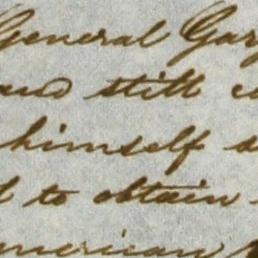 General
and still
himself
to obtain
American